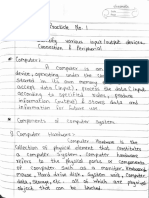 Practical No. 1
Identify various input/output devices,
Connection & Peripheral
Computer:
A computer is an
device, operating under the control
stored in its own memory
accept data (input), process the data
according to specified rules, produce
information (output) & stores data and
Components of Computer System
Computer Hardware:
Computer Hardware is the
collection of physical element that constitutes
a computer system. Computer hardware
refers to the physical parts or components
of computer such as a monitor, keyboard
mouse, Hard drive disk, system
data, storage, etc. all of which are physical
object that can be touched.